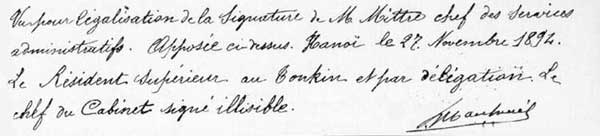 Vu pour légalisation de la signature de M Mittre chef des services
administratifs. Apposée ci-dessus. Hanoï le 27. Novembre 1894.
Le Résident Supérieur au Tonkin et par délégation. Le
chef du Cabinet signé illisible.